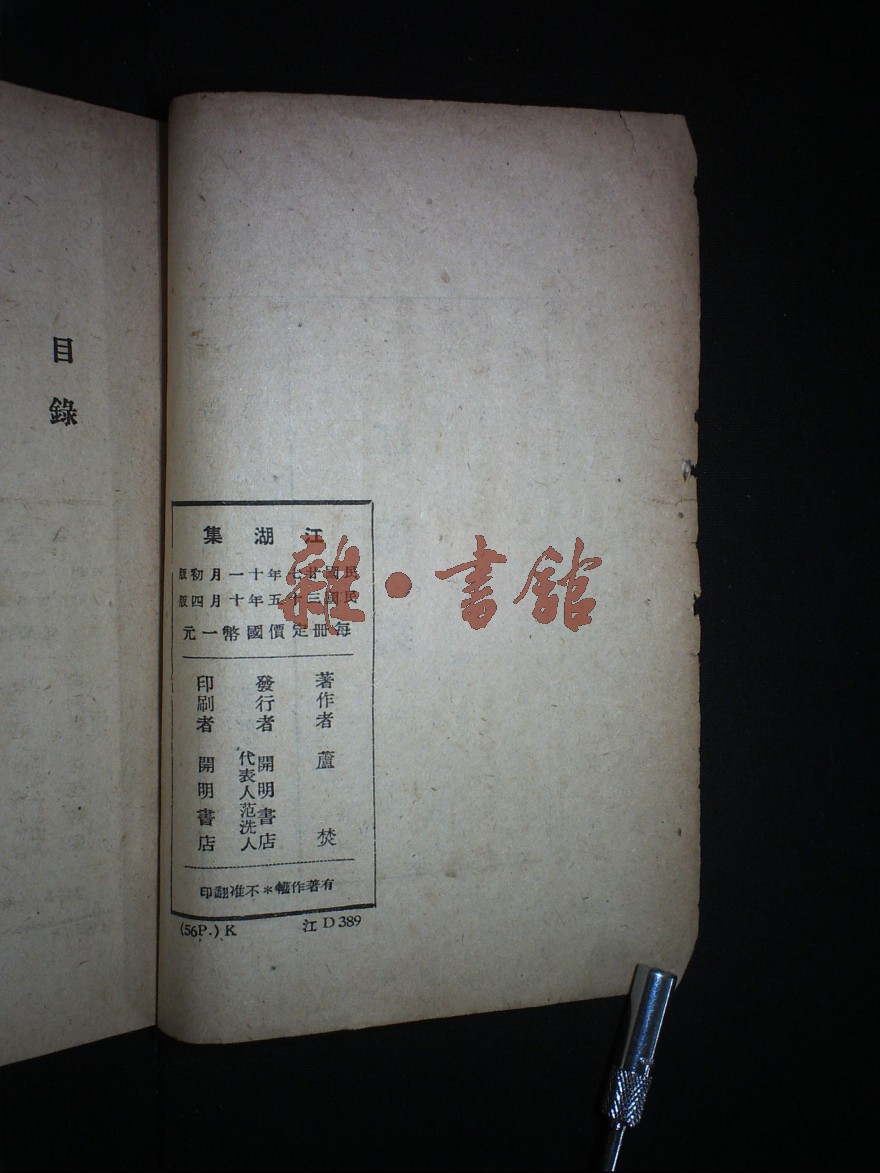 江湖集
民國廿七年十一月初版
民國三十五年十月四版
每冊定價國幣一元
著作者 蘆焚
發行者 開明書店
代表人范洗人
印刷者 開明書店
有著作權＊不准翻印
江 D 389
(56P.) K
目錄
雜·書館